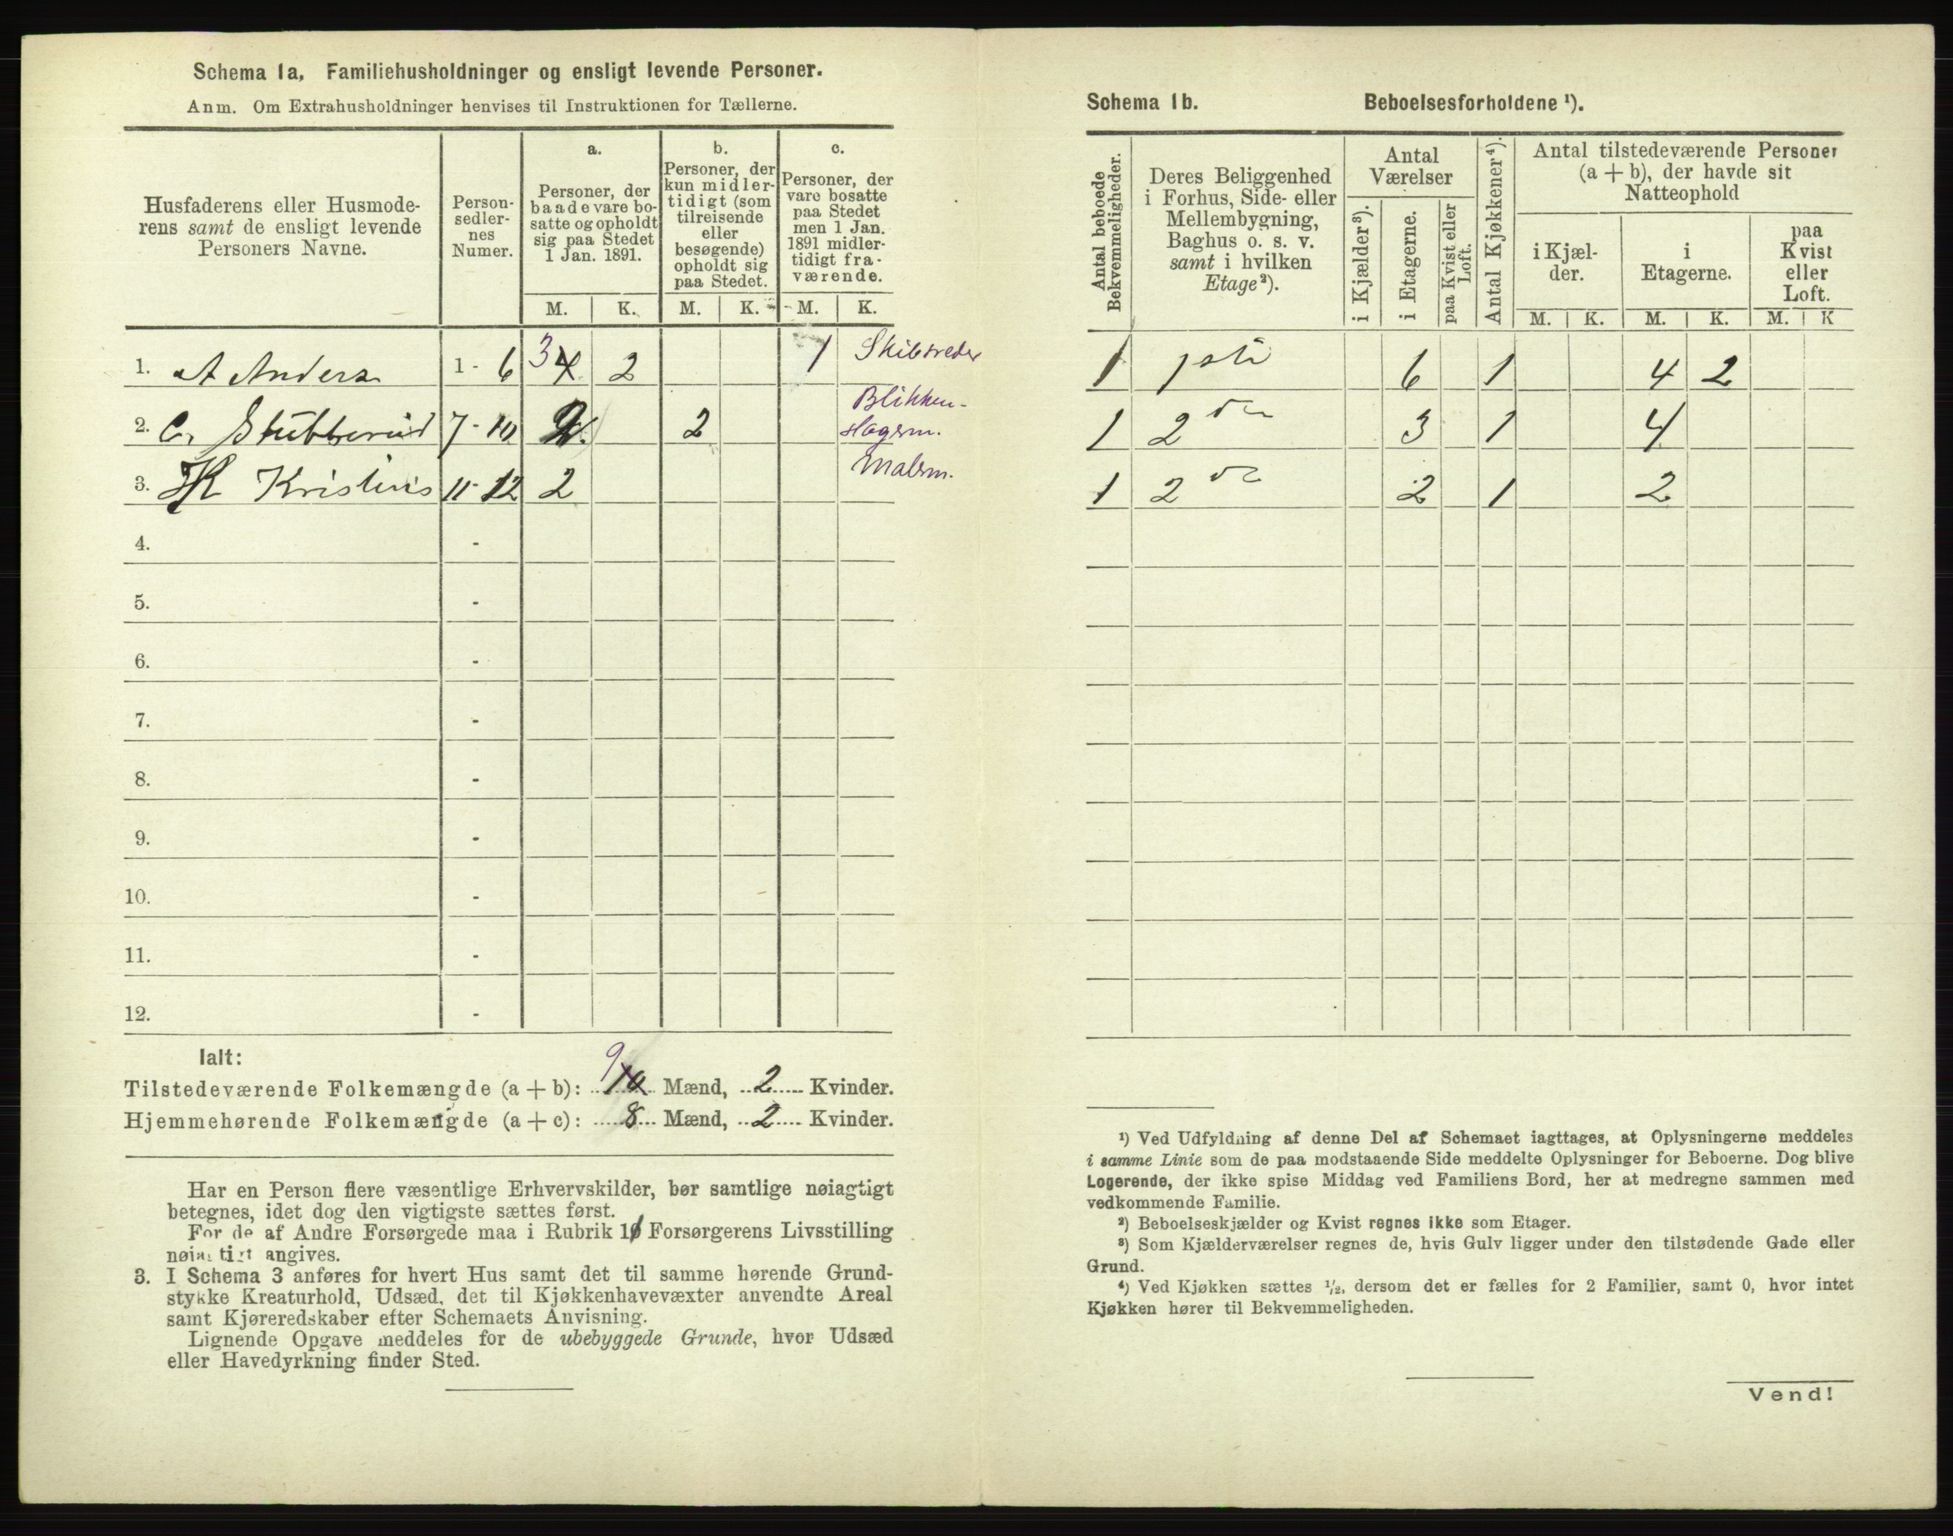 Schema 1a, Familiehusholdninger og ensligt levende Personer.
Anm. Om Extrahusholdninger henvises til Instruktionen for Tællerne.
Husfaderens eller Husmode-
rens samt de ensligt levende
Personers Navne.
Person-
sedler-
nes
Numer.
a.
Personer, der
baade vare bo-
satte og opholdt
sig paa Stedet
1 Jan. 1891.
b.
Personer, der
kun midler-
tidigt (som
tilreisende
eller
besøgende)
opholdt sig
paa Stedet.
c.
Personer, der
vare bosatte
paa Stedet
men 1 Jan.
1891 midler-
tidigt fra-
værende.
M. K. M. K. M. K.
1. A Anders 1 - 6 3 4 2 1 Skibsreder
2. C. Stubberud 7 - 10 2 2 Blikken-
slagerm.
3. K Kristins 11 - 12 2 Malerm.
4. -
5. -
6. -
7. -
8. -
9. -
10. -
11. -
12. -
Ialt:
Tilstedeværende Folkemængde (a + b): 9 10 Mænd, 2 Kvinder.
Hjemmehørende Folkemængde (a + c): 8 Mænd, 2 Kvinder.
Har en Person flere væsentlige Erhvervskilder, bør samtlige nøiagtigt
betegnes, idet dog den vigtigste sættes først.
For de af Andre Forsørgede maa i Rubrik 10 Forsørgerens Livsstilling
nøiagtigt angives.
3. I Schema 3 anføres for hvert Hus samt det til samme hørende Grund-
stykke Kreaturhold, Udsæd, det til Kjøkkenhavevæxter anvendte Areal
samt Kjøreredskaber efter Schemaets Anvisning.
Lignende Opgave meddeles for de ubebyggede Grunde, hvor Udsæd
eller Havedyrkning finder Sted.
Schema 1b. Beboelsesforholdene ¹).
Antal beboede
Bekvemmeligheder.
Deres Beliggenhed
i Forhus, Side- eller
Mellembygning,
Baghus o. s. v.
samt i hvilken
Etage²).
Antal
Værelser
i Kjælder³).
i Etagerne.
paa Kvist eller
Loft.
Antal Kjøkkener⁴).
Antal tilstedeværende Personer
(a + b), der havde sit
Natteophold
i Kjæl-
der.
i
Etagerne.
paa
Kvist
eller
Loft.
M. K. M. K. M. K
1 1ste 6 1 4 2
1 2den 3 1 4
1 2den 2 1 2
¹) Ved Udfyldning af denne Del af Schemaet iagttages, at Oplysningerne meddeles
i samme Linie som de paa modstaaende Side meddelte Oplysninger for Beboerne. Dog blive
Logerende, der ikke spise Middag ved Familiens Bord, her at medregne sammen med
vedkommende Familie.
²) Beboelseskjælder og Kvist regnes ikke som Etager.
³) Som Kjælderværelser regnes de, hvis Gulv ligger under den tilstødende Gade eller
Grund.
⁴) Ved Kjøkken sættes ¹/₂, dersom det er fælles for 2 Familier, samt 0, hvor intet
Kjøkken hører til Bekvemmeligheden.
Vend!